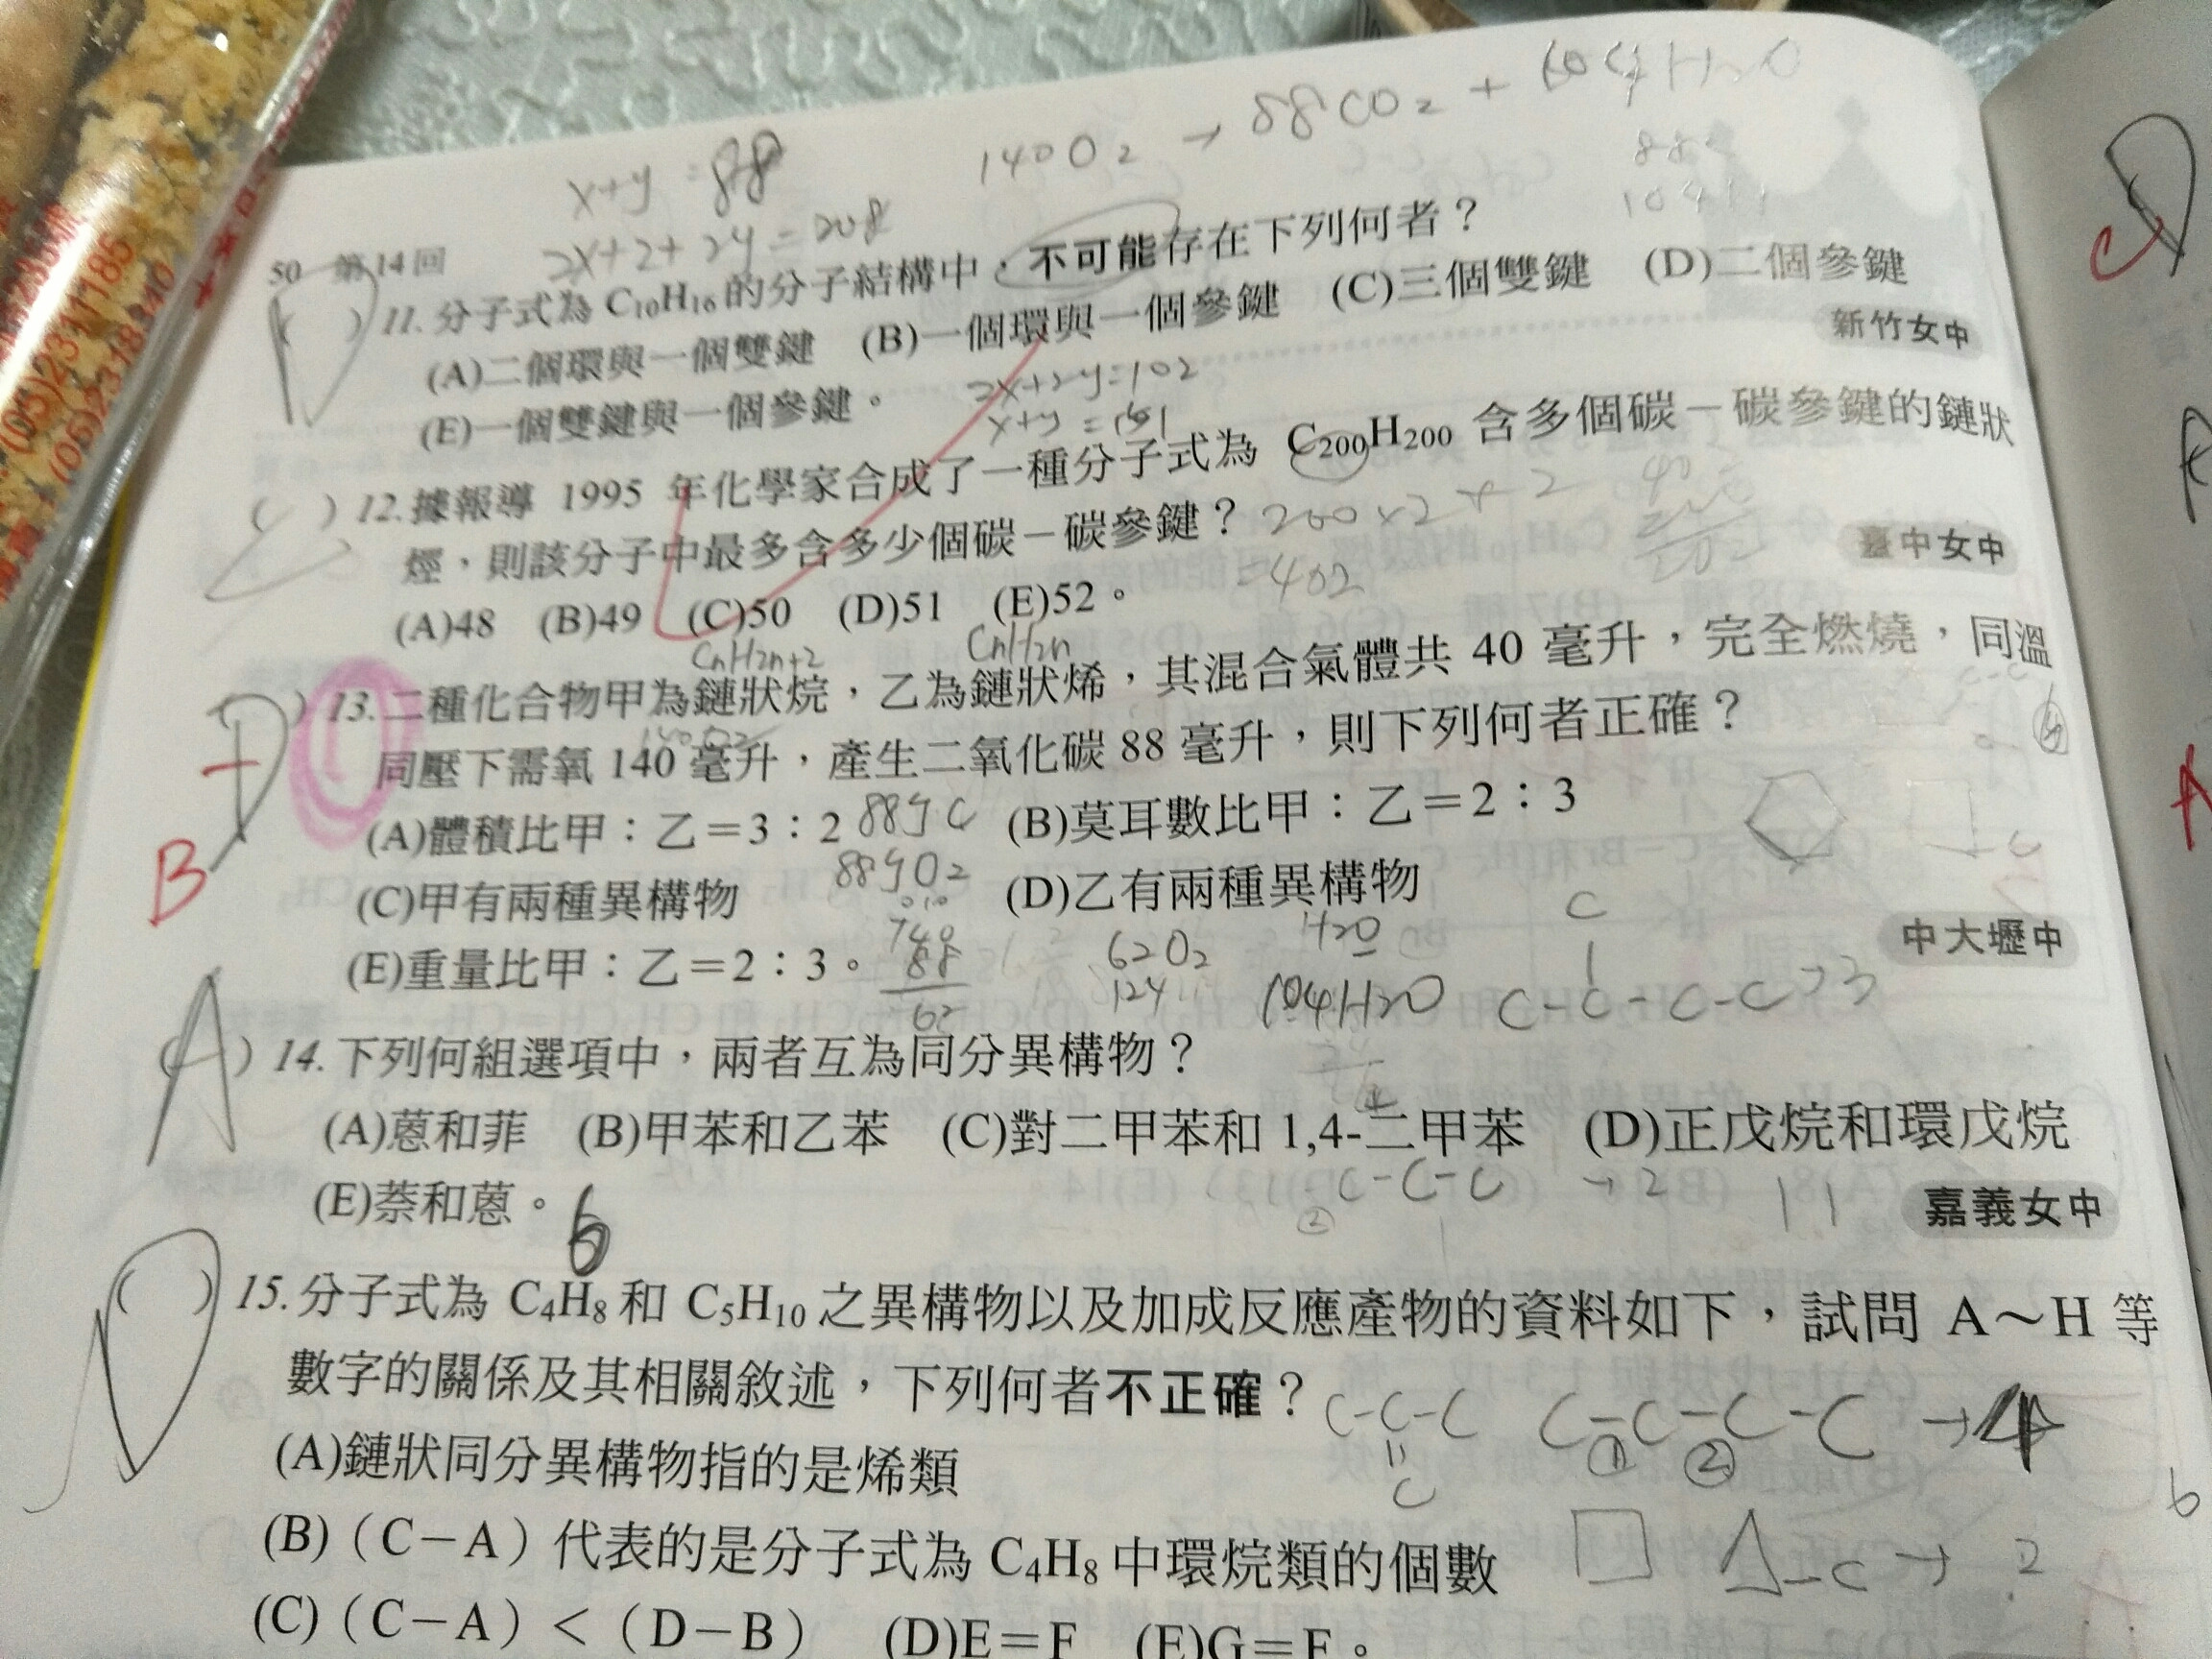 14002 → 88CO2 + 104H2O
x+y=88
2x+2+2y=208
50 第14回
( ) 11. 分子式為 C10H16 的分子結構中，不可能存在下列何者？
(A)二個環與一個雙鍵 (B)一個環與一個參鍵 (C)三個雙鍵 (D)二個參鍵
(E)一個雙鍵與一個參鍵。
新竹女中
2x+2y=102
( ) 12. 據報導 1995 年化學家合成了一種分子式為 C200H200 含多個碳－碳參鍵的鏈狀
烴，則該分子中最多含多少個碳－碳參鍵？
200×2+2
=402
臺中女中
(A)48 (B)49 (C)50 (D)51 (E)52。
CnH2n+2 CnH2n
D ) 13. 二種化合物甲為鏈狀烷，乙為鏈狀烯，其混合氣體共 40 毫升，完全燃燒，同溫
同壓下需氧 140 毫升，產生二氧化碳 88 毫升，則下列何者正確？
(A)體積比甲：乙＝3：2 (B)莫耳數比甲：乙＝2：3
B
(C)甲有兩種異構物 (D)乙有兩種異構物
(E)重量比甲：乙＝2：3。
中大壢中
88
62
62O2
124
H2O
104H2O
C-C-C-C→3
(A) 14. 下列何組選項中，兩者互為同分異構物？
(A)蒽和菲 (B)甲苯和乙苯 (C)對二甲苯和 1,4-二甲苯 (D)正戊烷和環戊烷
(E)萘和蒽。
C-C-C →2
嘉義女中
6
( ) 15. 分子式為 C4H8 和 C5H10 之異構物以及加成反應產物的資料如下，試問 A～H 等
數字的關係及其相關敘述，下列何者不正確？
C-C-C
C
C-C-C-C →4
① ②
(A)鏈狀同分異構物指的是烯類
(B)（C－A）代表的是分子式為 C4H8 中環烷類的個數
-C → 2
(C)（C－A）＜（D－B） (D)E＝F (E)G＝F。
D
C
A
6